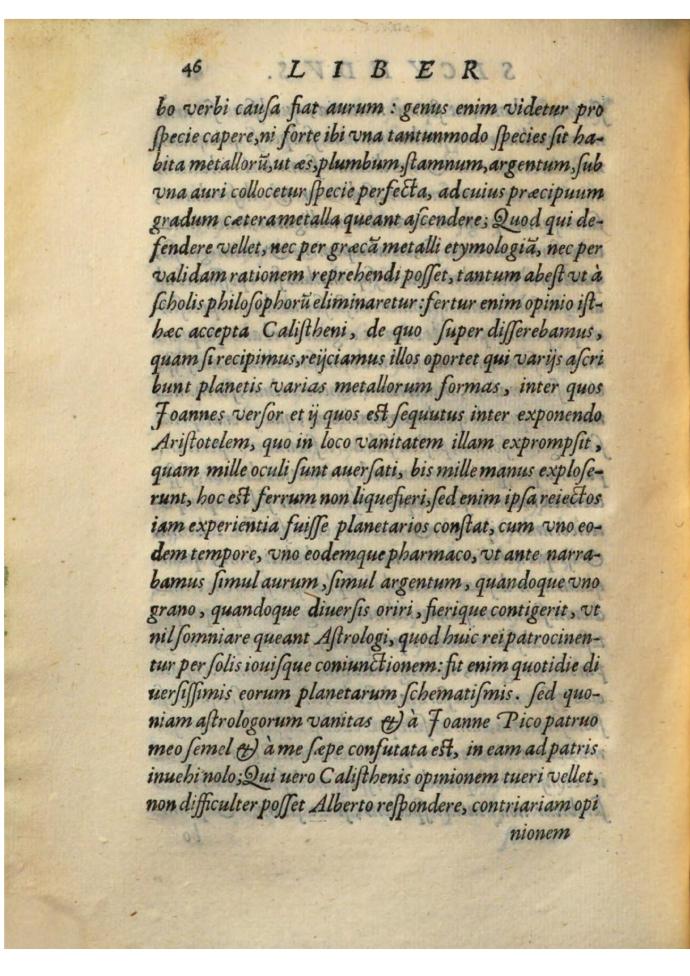 46 LIBER
bo verbi cauſa fiat aurum : genus enim videtur pro
ſpecie capere,ni forte ibi vna tantunmodo ſpecies ſit ha-
bita metallorũ,ut æs,plumbum,ſtamnum,argentum,ſub
vna auri collocetur ſpecie perfecta, ad cuius præcipuum
gradum cætera metalla queant aſcendere; Quod qui de-
fendere vellet, nec per græcã metalli etymologiã, nec per
validam rationem reprehendi poſſet, tantum abeſt vt à
ſcholis philoſophorũ eliminaretur:fertur enim opinio iſt-
hæc accepta Caliſtheni, de quo ſuper differebamus,
quam ſi recipimus,reijciamus illos oportet qui varijs aſcri
bunt planetis varias metallorum formas, inter quos
Joannes verſor et ij quos eſt ſequutus inter exponendo
Ariſtotelem, quo in loco vanitatem illam exprompſit,
quam mille oculi ſunt auerſati, bis mille manus exploſe-
runt, hoc eſt ferrum non liquefieri,ſed enim ipſa reiectos
iam experientia fuiſſe planetarios conſtat, cum vno eo-
dem tempore, vno eodemque pharmaco, vt ante narra-
bamus ſimul aurum, ſimul argentum, quandoque vno
grano, quandoque diuerſis oriri, fierique contigerit, vt
nil ſomniare queant Aſtrologi, quod huic rei patrocinen-
tur per ſolis iouiſque coniunctionem: fit enim quotidie di
uerſiſſimis eorum planetarum ſchematiſmis. ſed quo-
niam aſtrologorum vanitas & à Joanne Pico patruo
meo ſemel & à me ſæpe confutata eſt, in eam ad patris
inuehi nolo;Qui uero Caliſthenis opinionem tueri vellet,
non difficulter poſſet Alberto reſpondere, contriariam opi
nionem